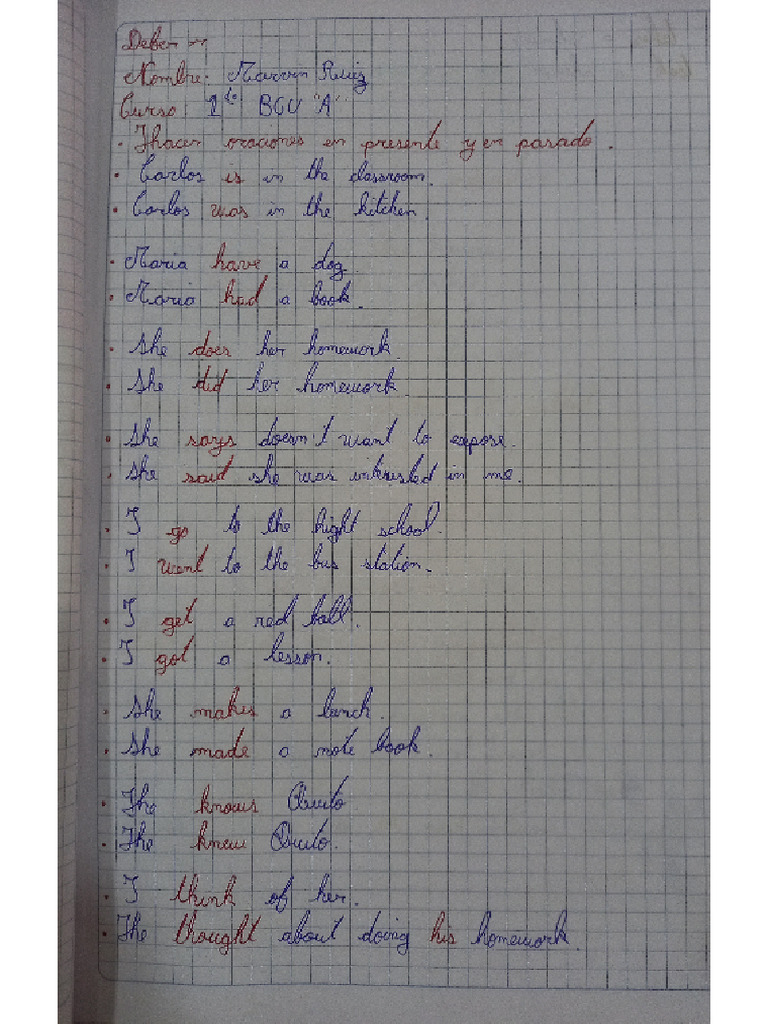 Deber
Nombre: Marvin Ruiz
Curso 1ro BGU "A"
• Hacer oraciones en presente y en pasado.
• Carlos is in the classroom.
• Carlos was in the kitchen.
• Maria have a dog
• Maria had a book.
• She does her homework.
• She did her homework
• She says doesn't want to expose.
• She said she was intrusted in me.
• I go to the hight school.
• I went to the bus station.
• I get a red ball.
• I got a lesson.
• She makes a lunch.
• She made a note book.
• He knows Quito
• He knew Quito.
• I think of her.
• He thought about doing his homework.